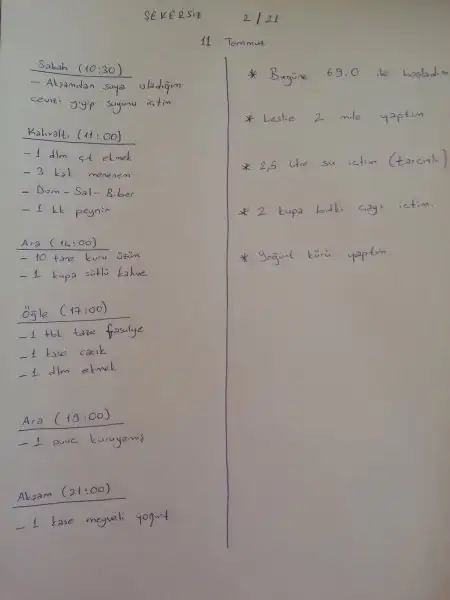 ŞEKERSİZ 2/21
11 Temmuz
Sabah (10:30)
- Akşamdan suya ısladığım
cevizi yiyip suyunu içtim
Kahvaltı (11:00)
- 1 dlm çd ekmek
- 3 kaş menemen
- Dom - Sal - Biber
- 1 kk peynir
Ara (14:00)
- 10 tane kuru üzüm
- 1 kupa sütlü kahve
Öğle (17:00)
- 1 tbk taze fasulye
- 1 kase cacık
- 1 dlm ekmek
Ara (19:00)
- 1 avuç kuruyemiş
Akşam (21:00)
- 1 kase meyveli yoğurt
* Bugüne 69.0 ile başladım
* Leslie 2 mile yaptım
* 2,5 litre su içtim (tarçınlı)
* 2 kupa bitki çayı içtim.
* Yoğurt kürü yaptım